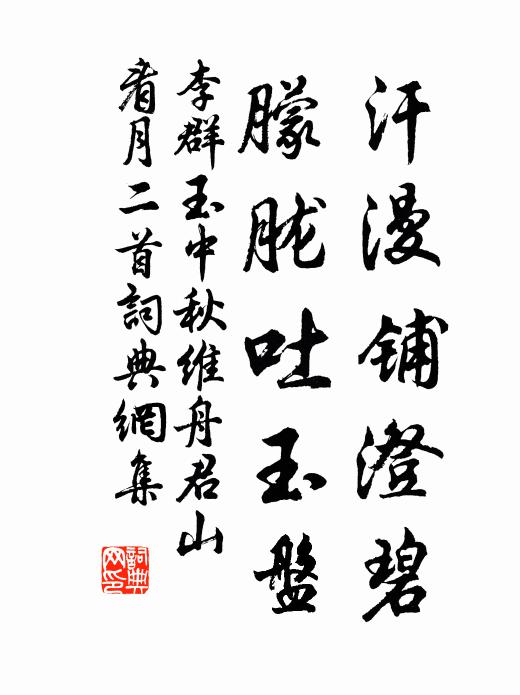 汗漫铺澄碧
朦胧吐玉盤
李群玉中秋维舟君山
看月二首詞典網集
詞典網印